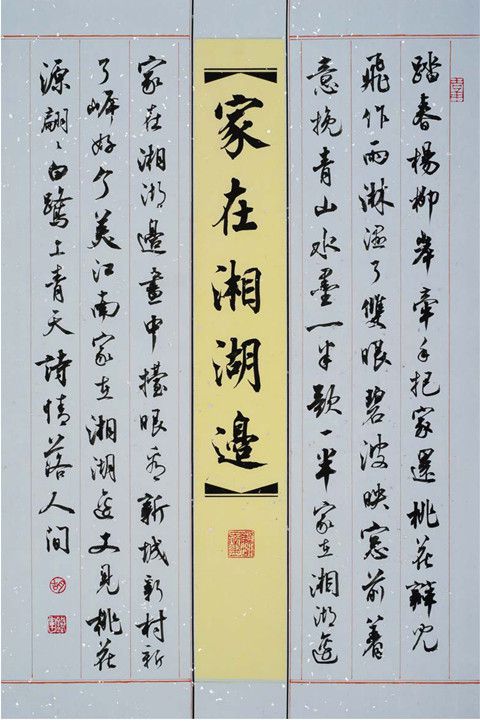 踏春楊柳岸牽手把家還桃花瓣兒
飛作雨淋濕了雙眼碧波映窓前著
意挽青山水墨一半歌一半家在湘湖邊
【家在湘湖邊】
家在湘湖邊畫中擡眼看新城新村新
了岸好个美江南家在湘湖邊又見桃花
源翩〻白鷺上青天詩情落人间